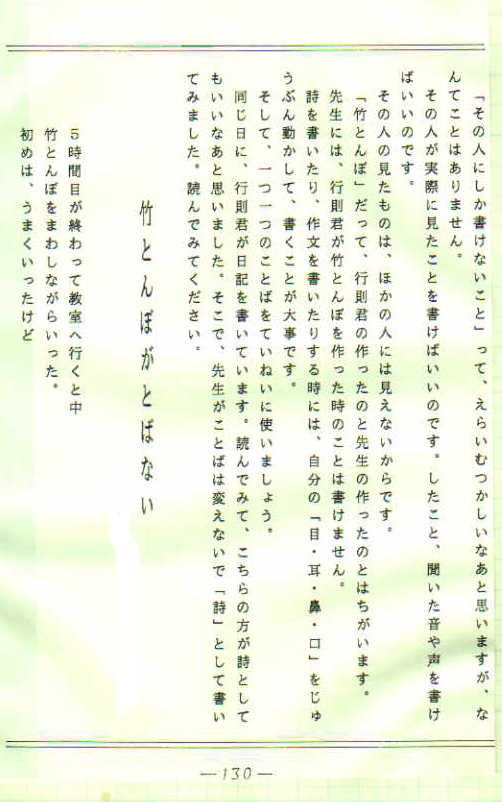 「その人にしか書けないこと」って、えらいむつかしいなあと思いますが、な
んてことはありません。
その人が実際に見たことを書けばいいのです。したこと、聞いた音や声を書け
ばいいのです。
その人の見たものは、ほかの人には見えないからです。
「竹とんぼ」だって、行則君の作ったのと先生の作ったのとはちがいます。
先生には、行則君が竹とんぼを作った時のことは書けません。
詩を書いたり、作文を書いたりする時には、自分の「目・耳・鼻・口」をじゅ
うぶん動かして、書くことが大事です。
そして、一つ一つのことばをていねいに使いましょう。
同じ日に、行則君が日記を書いています。読んでみて、こちらの方が詩として
もいいなあと思いました。そこで、先生がことばは変えないで「詩」として書い
てみました。読んでみてください。
竹とんぼがとばない
5時間目が終わって教室へ行くと中
竹とんぼをまわしながらいった。
初めは、うまくいったけど
—130—